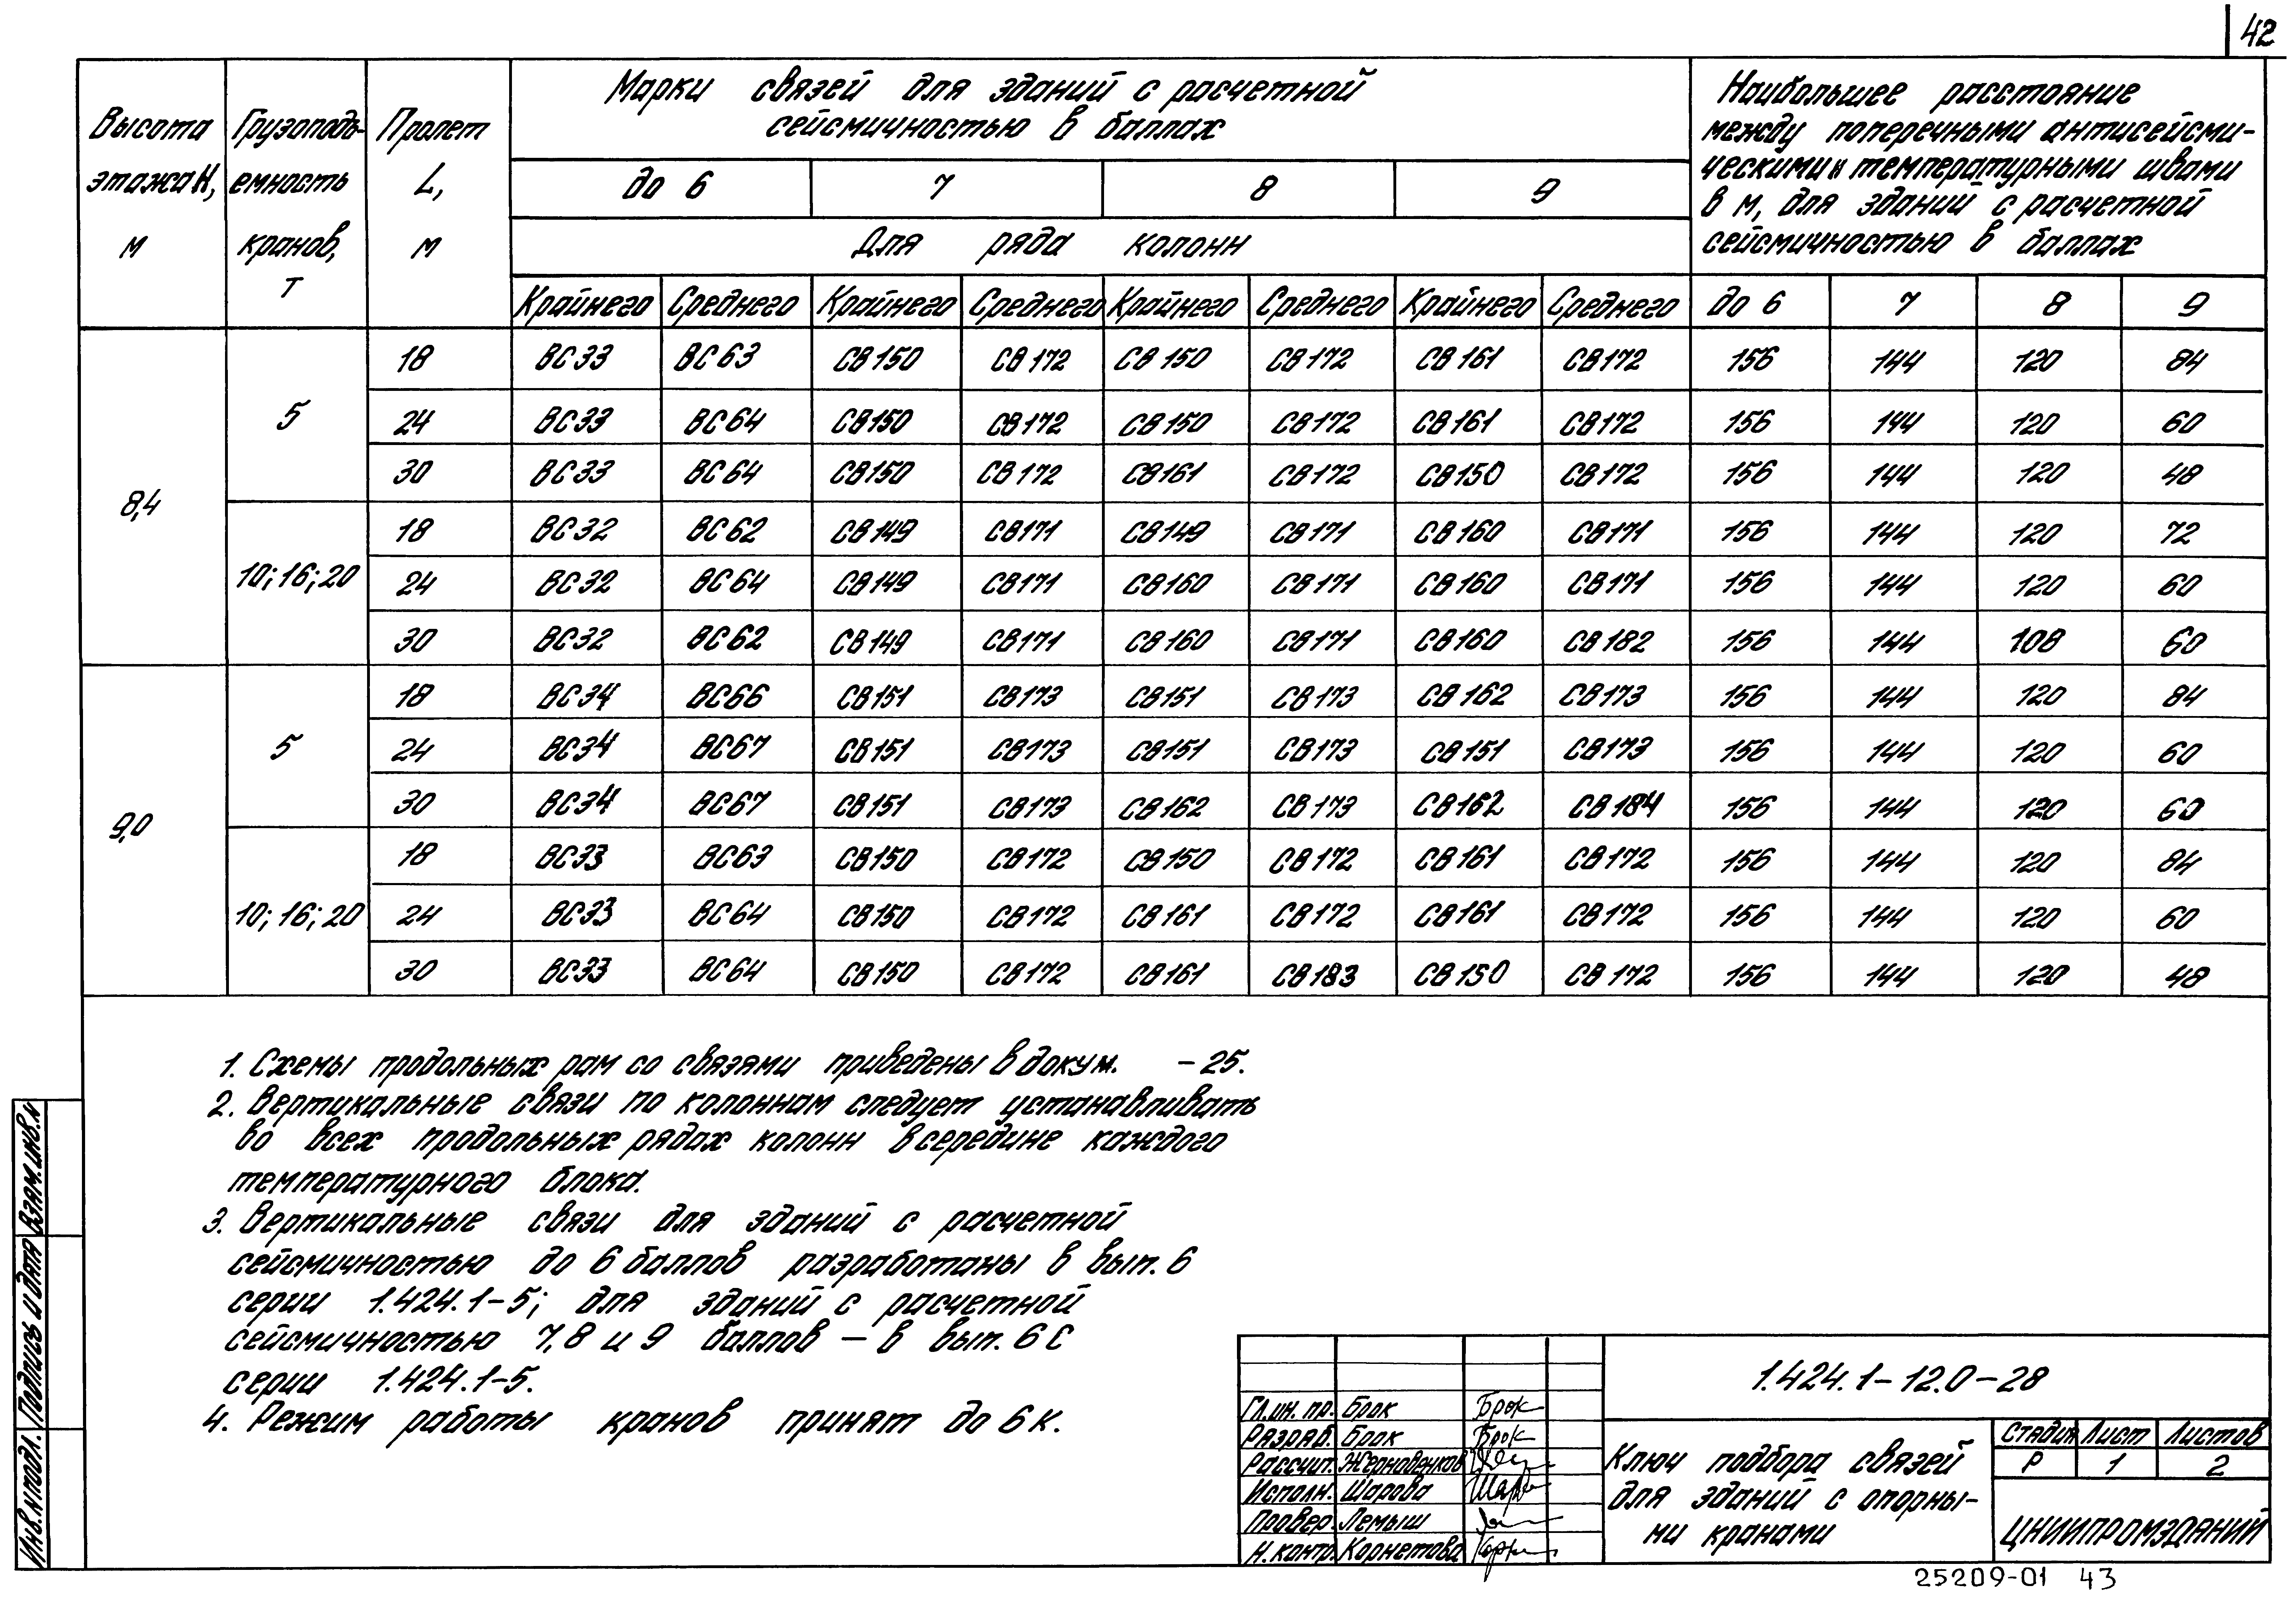 42
Марки связей для зданий с расчетной сейсмичностью в баллах
Наибольшее расстояние
между поперечными антисейсми-
ческими и температурными швами
в м, для зданий с расчетной
сейсмичностью в баллах
Высота этажа Н, м
Грузоподъ-емность кранов, т
Пролет L, м
до 6 7 8 9
Для ряда колонн
Крайнего Среднего Крайнего Среднего Крайнего Среднего Крайнего Среднего до 6 7 8 9
8,4 5 18 ВС33 ВС63 СВ150 СВ172 СВ150 СВ172 СВ161 СВ172 156 144 120 84
24 ВС33 ВС64 СВ150 СВ172 СВ150 СВ172 СВ161 СВ172 156 144 120 60
30 ВС33 ВС64 СВ150 СВ172 СВ161 СВ172 СВ150 СВ172 156 144 120 48
10; 16; 20 18 ВС32 ВС62 СВ149 СВ171 СВ149 СВ171 СВ160 СВ171 156 144 120 72
24 ВС32 ВС64 СВ149 СВ171 СВ160 СВ171 СВ160 СВ171 156 144 120 60
30 ВС32 ВС62 СВ149 СВ171 СВ160 СВ171 СВ160 СВ182 156 144 108 60
9,0 5 18 ВС34 ВС66 СВ151 СВ173 СВ151 СВ173 СВ162 СВ173 156 144 120 84
24 ВС34 ВС67 СВ151 СВ173 СВ151 СВ173 СВ151 СВ173 156 144 120 60
30 ВС34 ВС67 СВ151 СВ173 СВ162 СВ173 СВ162 СВ184 156 144 120 60
10; 16; 20 18 ВС33 ВС63 СВ150 СВ172 СВ150 СВ172 СВ161 СВ172 156 144 120 84
24 ВС33 ВС64 СВ150 СВ172 СВ161 СВ172 СВ161 СВ172 156 144 120 60
30 ВС33 ВС64 СВ150 СВ172 СВ161 СВ183 СВ150 СВ172 156 144 120 48
1. Схемы продольных рам со связями приведены в докум. -25.
2. Вертикальные связи по колоннам следует устанавливать
во всех продольных рядах колонн в середине каждого
температурного блока.
3. Вертикальные связи для зданий с расчетной
сейсмичностью до 6 баллов разработаны в вып. 6
серии 1.424.1-5; для зданий с расчетной
сейсмичностью 7, 8 и 9 баллов — в вып. 6С
серии 1.424.1-5.
4. Режим работы кранов принят до 6К.
Инв.N подл. Подпись и дата Взам.инв.N
1.424.1-12.0-28
Гл.ин.пр. Брок Брок
Разраб. Брок Брок
Рассчит.
Исполн. Шарова
Провер. Лемыш
Н.контр. Корнетова
Ключ подбора связей
для зданий с опорны-
ми кранами
Стадия Лист Листов
Р 1 2
ЦНИИПРОМЗДАНИЙ
25209-01 43